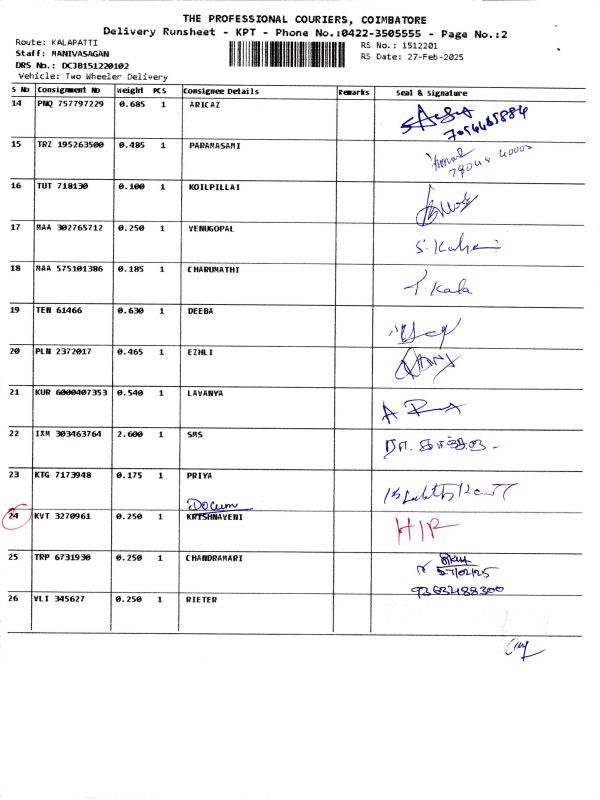 THE PROFESSIONAL COURIERS, COIMBATORE
Delivery Runsheet - KPT - Phone No.:0422-3505555 - Page No.:2
Route: KALAPATTI
RS No.: 1512201
Staff: MANIVASAGAN
RS Date: 27-Feb-2025
DRS No.: DCJB151220102
Vehicle: Two Wheeler Delivery
S No Consignment No Weight PCS Consignee Details Remarks Seal & Signature
14 PNQ 757797229 0.685 1 ARICAZ
15 TRZ 195263500 0.485 1 PARAMASAMI
16 TUT 718130 0.100 1 KOILPILLAI
17 MAA 302765712 0.250 1 VENUGOPAL
18 MAA 575101386 0.185 1 CHARUMATHI T. Kala
19 TEN 61466 0.630 1 DEEBA
20 PLN 2372017 0.465 1 EZHLI
21 KUR 6000407353 0.540 1 LAVANYA
22 IXM 303463764 2.600 1 SMS
23 KTG 7173948 0.175 1 PRIYA
Docum
24 KVT 3270961 0.250 1 KRISHNAVENI H/R
25 TRP 6731930 0.250 1 CHANDRAMARI
27/02/25
9363488300
26 VLI 345627 0.250 1 RIETER